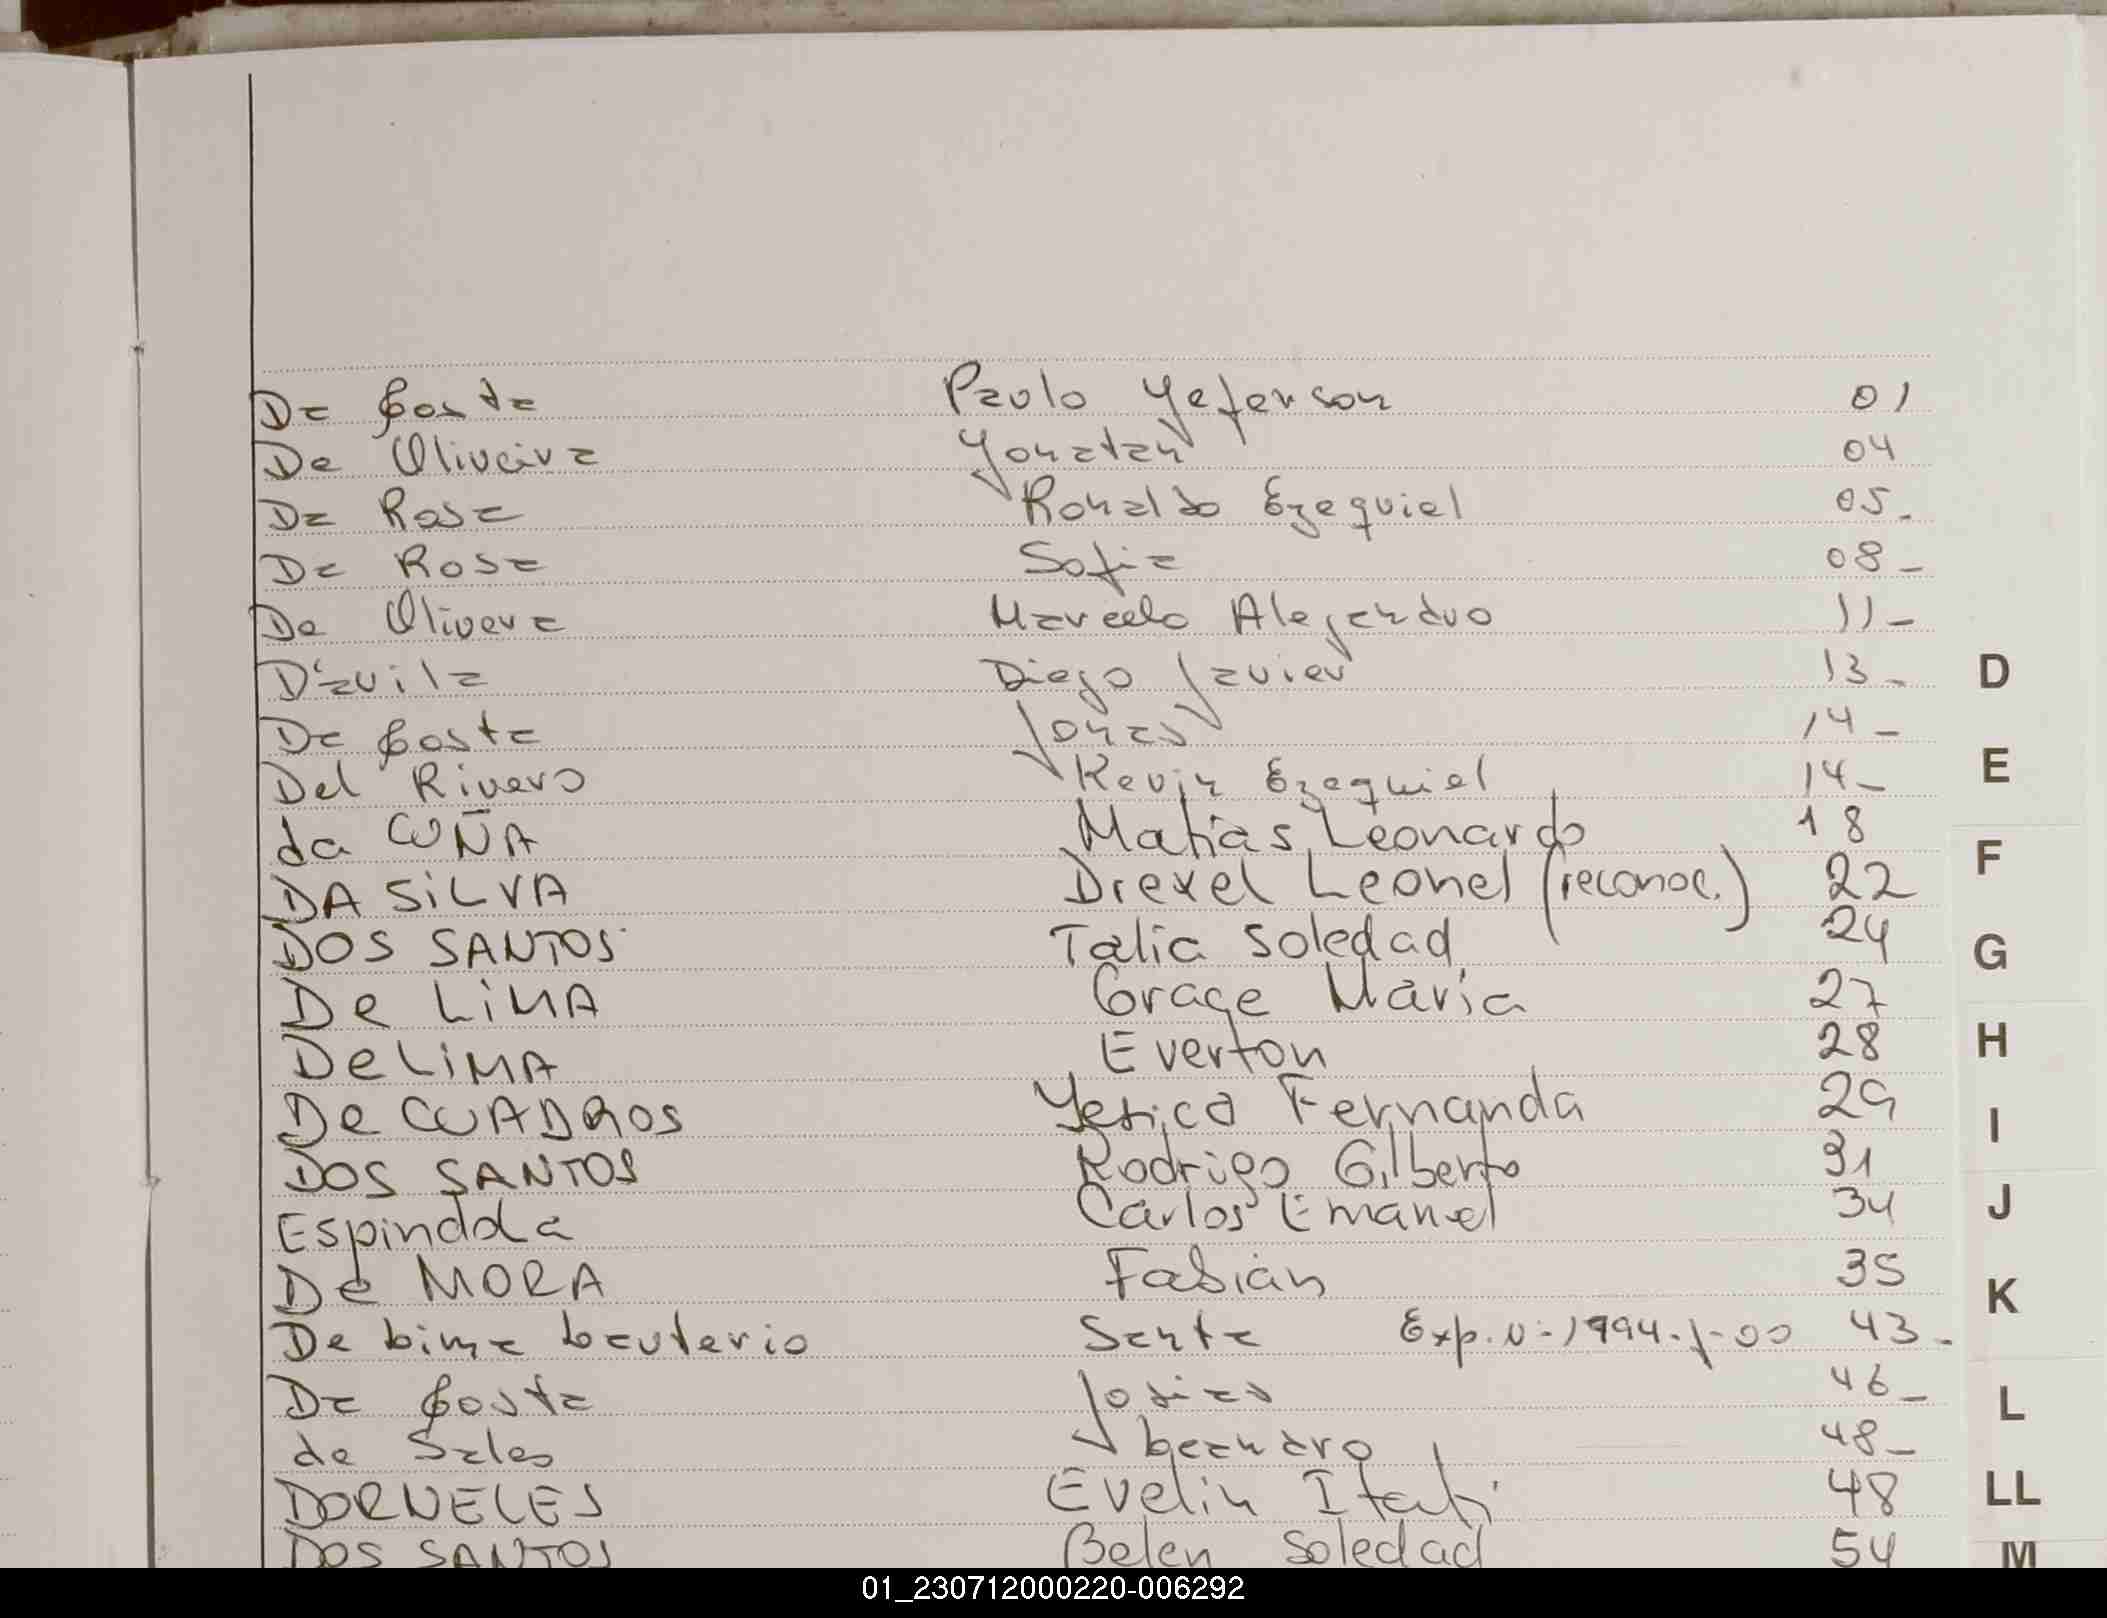 Da Costa Paulo Yeferson 01
De Oliveira Yonatan 04
Da Rosa Ronaldo Ezequiel 05-
Da Rosa Sofia 08-
De Olivera Marcelo Alejandro 11-
D'avila Diego Javier 13-
D
Da Costa Jonas 14-
Del Rivero Kevin Ezequiel 14-
E
da CUÑA Matías Leonardo 18
DA SiLVA Drexel Leonel (reconoc.) 22
F
DOS SANTOS Talia Soledad 24
G
De LiMA Grace María 27
De LiMA Everton 28
H
De CUADROS Yesica Fernanda 29
I
DOS SANTOS Rodrigo Gilberto 31
Espindola Carlos Emanuel 34
J
De MORA Fabián 35
K
De Lima Lauterio Santa Exp. N: 1994-J-00 43-
Da Costa Josias 46-
L
de Sales Leandro 48-
DORNELES Evelin Itatí 48
LL
DOS SANTOS Belen Soledad 54
M
01_230712000220-006292